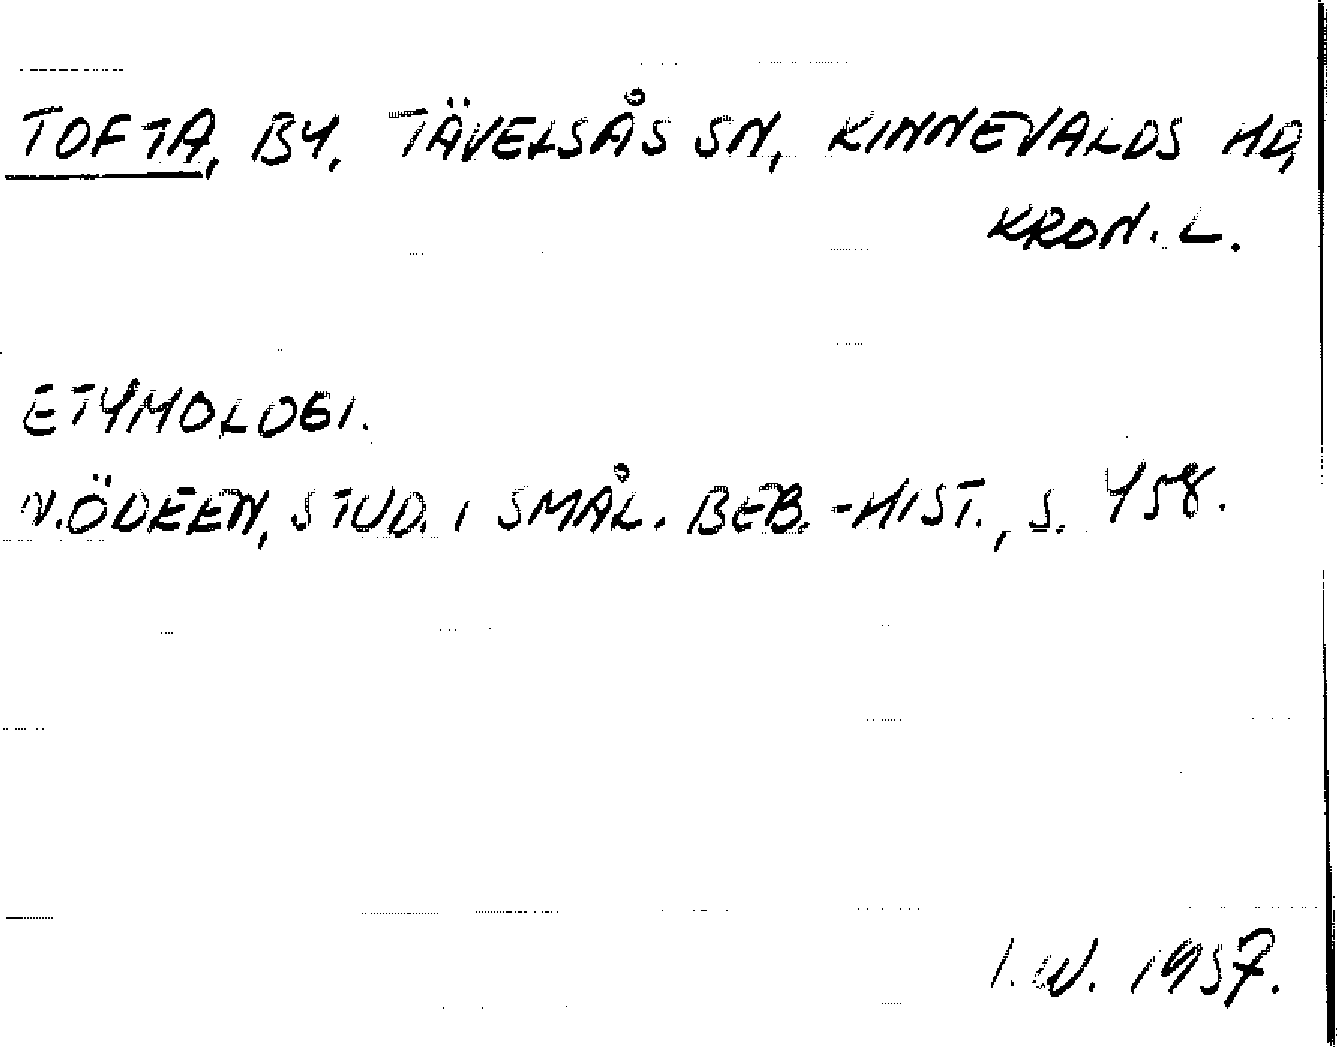 TOFTA, BY, TÄVELSÅS SN, KINNEVALDS HD,
KRON. L.
ETYMOLOGI.
N. ÖDEEN, STUD. I SMÅL. BEB.-HIST., S. 458.
I.W. 1957.